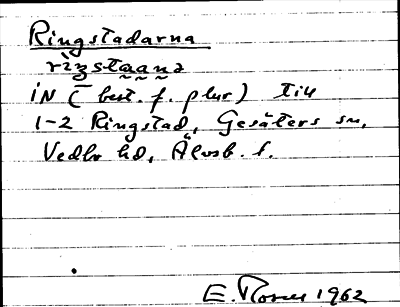 Ringstadarna
rìŋstaana
IN (best. f. plur) till
1-2 Ringstad, Gesäters sn,
Vedbo hd, Älvsb. l.
E. 1962